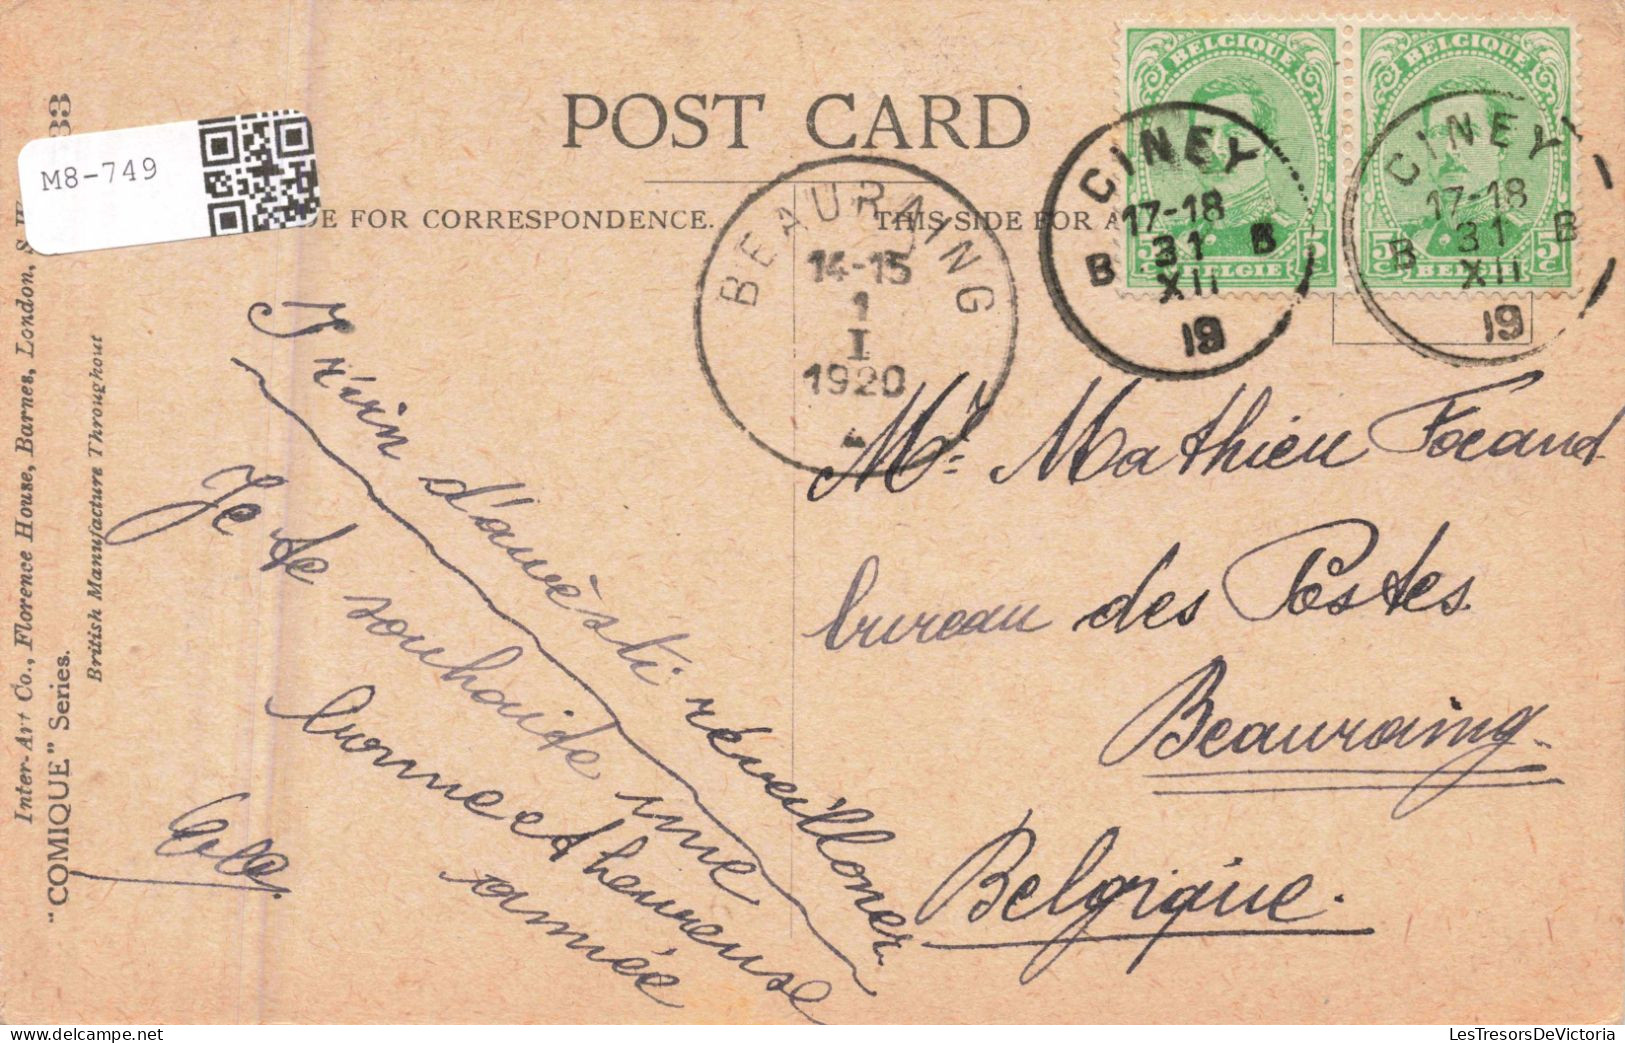 M8-749
POST CARD
BELGIQUE BELGIQUE
5c BELGIE 5c 5c BELGIE 5c
CINEY
17-18
B 31 B
XII
19
CINEY
17-18
B 31 B
XII
19
BEAURAING
14-15
1
I
1920
DE FOR CORRESPONDENCE.
THIS SIDE FOR A
Inter-Art Co., Florence House, Barnes, London, S.W.
"COMIQUE" Series.
33
British Manufacture Throughout
d'avès-ti réveilloner
Je te souhaite une
bonne et heureuse
année
Mr. Mathieu Focand
bureau des Postes.
Beauraing.
Belgique.
LesTresorsDeVictoria
delcampe.net